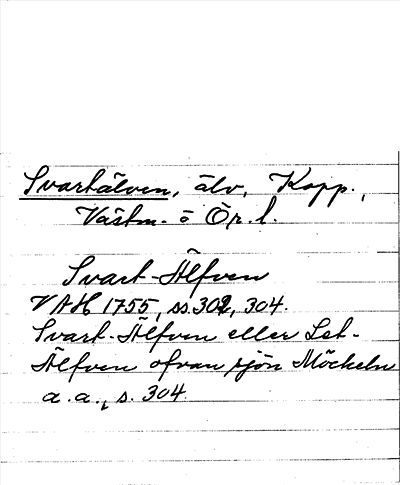 Svartälven, älv, Kopp.,
Västm. o Ör. l.
Svart-Älfven
VAH 1755, ss. 302, 304.
Svart-Älfven eller Let-
Älfven ofvan sjön Möckeln
a.a., s. 304